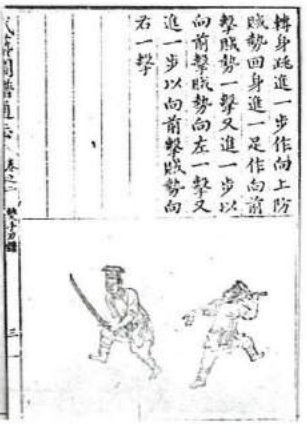 轉身跳進一步作向上防
賊勢回身進一足作向前
擊賊勢一擊又進一步以
向前擊賊勢向左一擊又
進一步以向前擊賊勢向
右一擊
武藝圖譜通志 卷之二 雙手刀譜